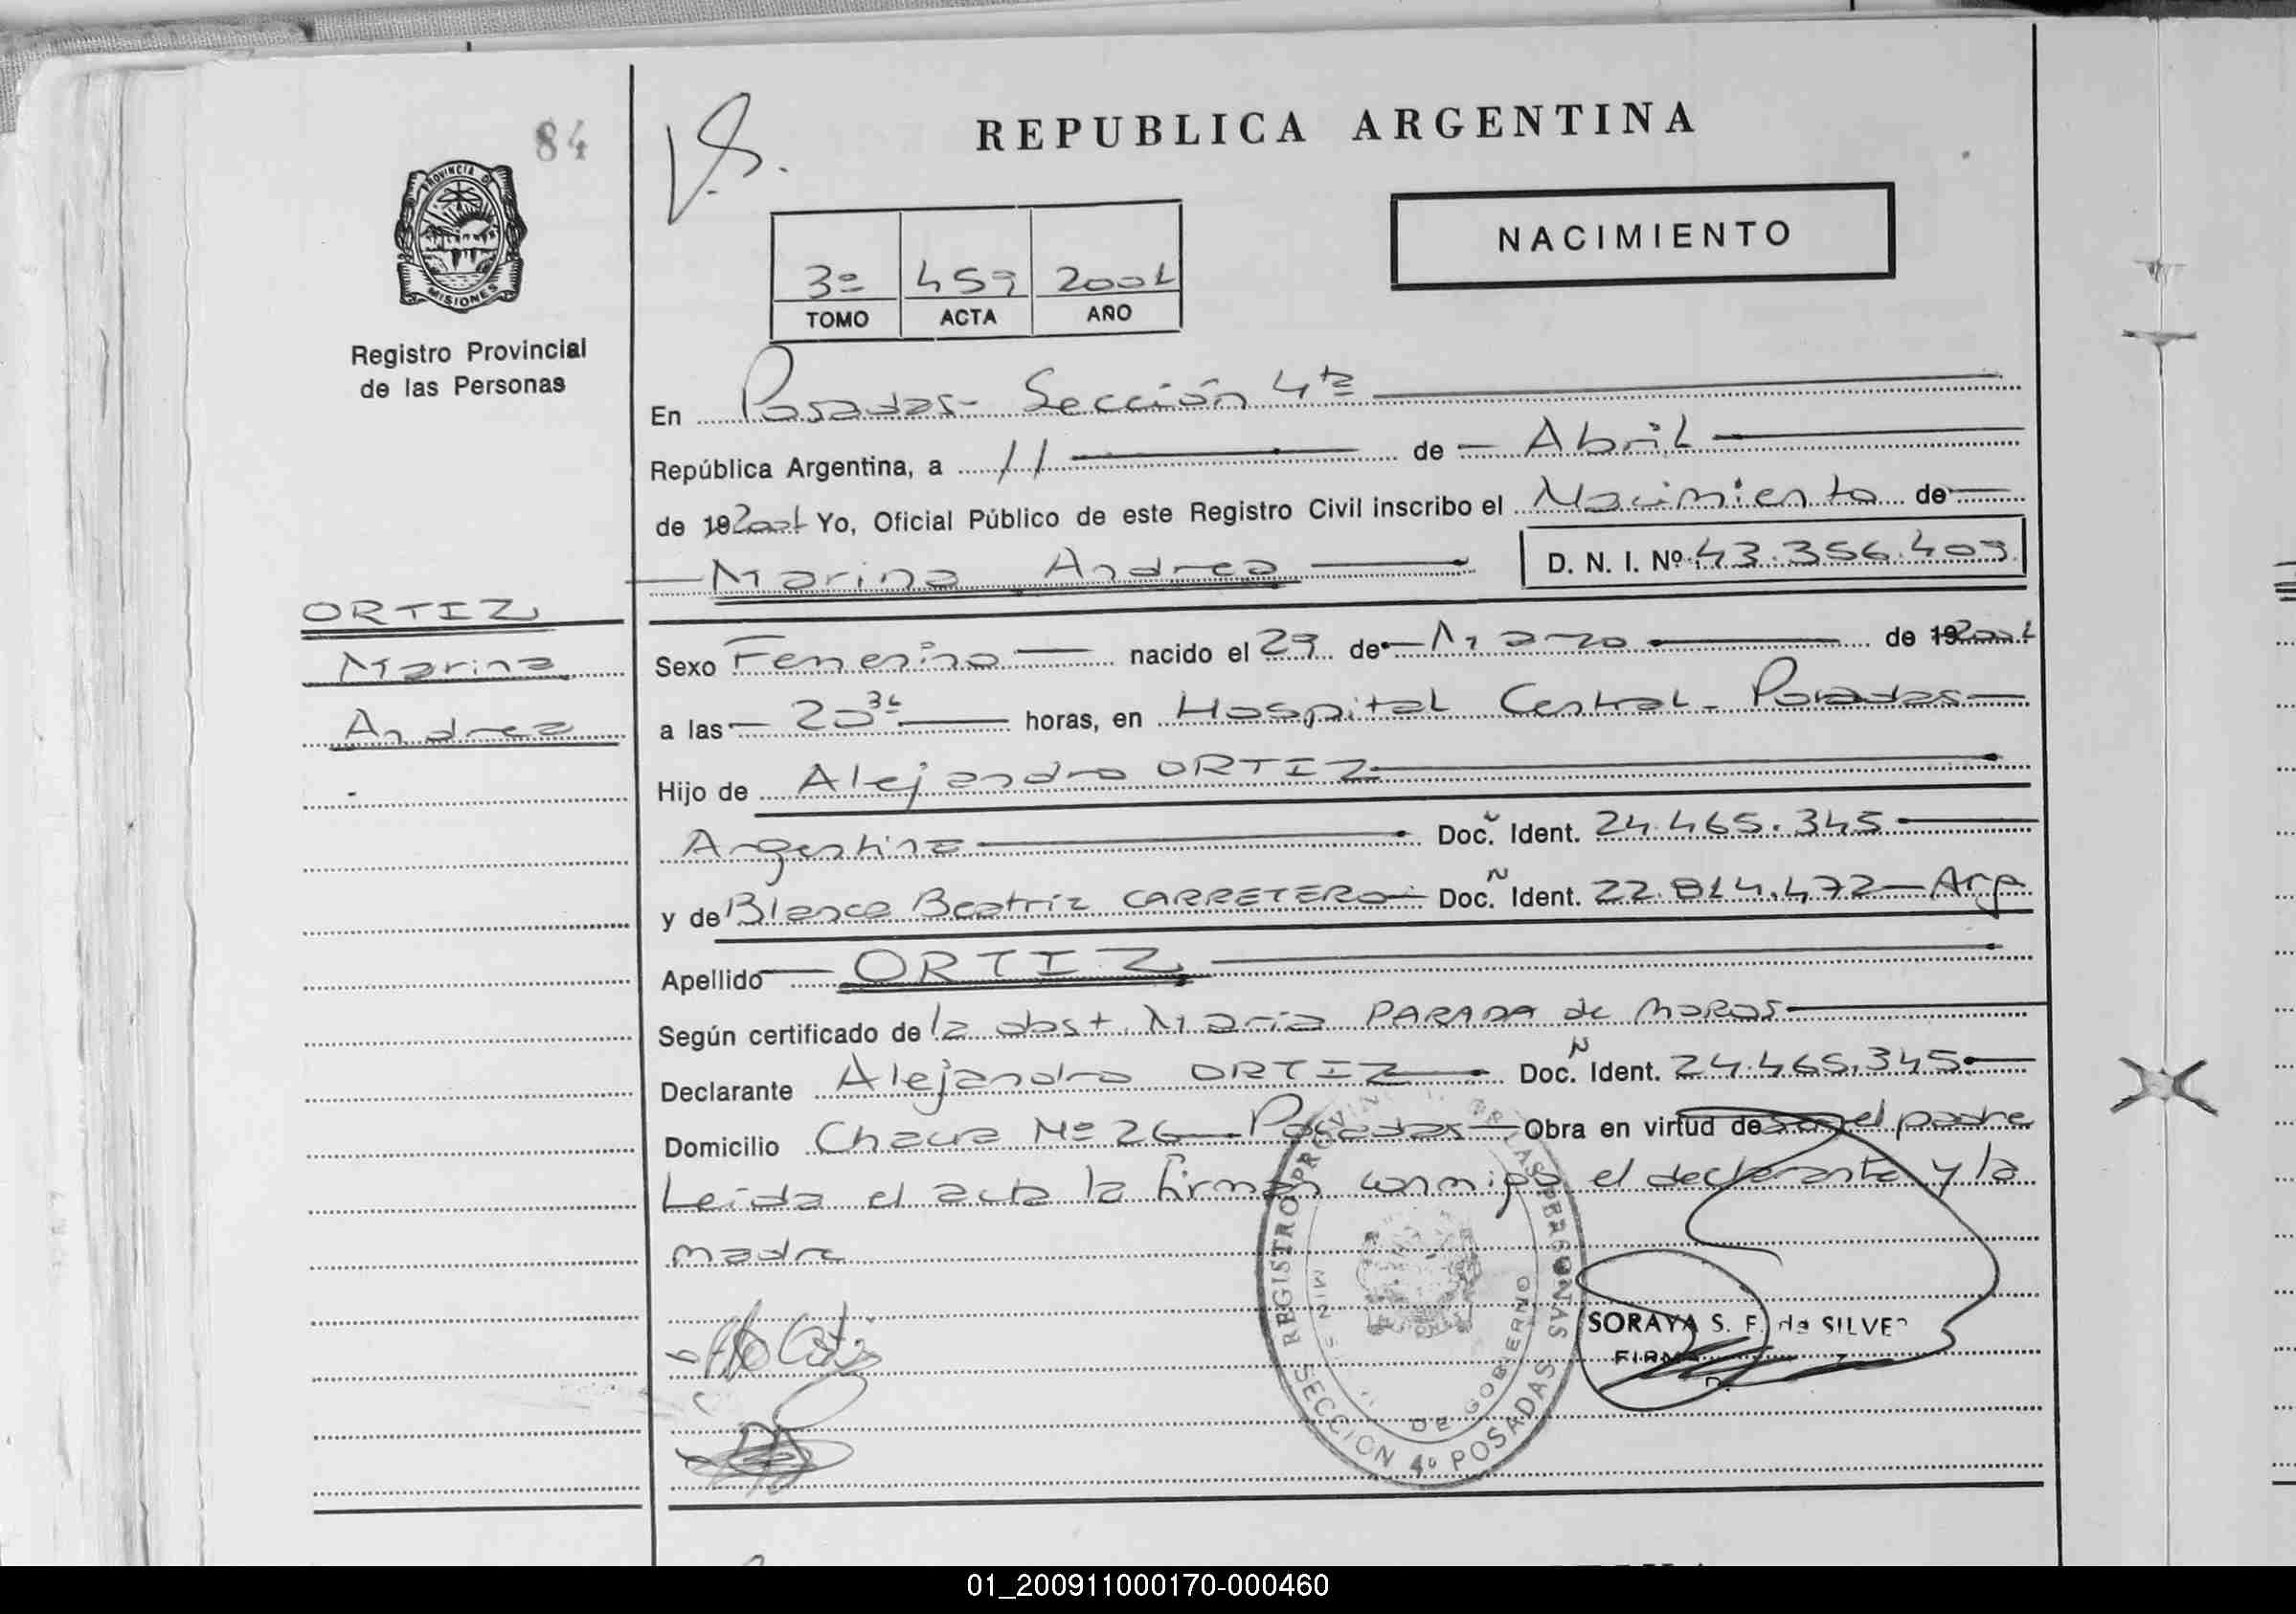 84
V.S.
REPUBLICA ARGENTINA
PROVINCIA D MISIONES
NACIMIENTO
3º 459 2001
TOMO ACTA AÑO
Registro Provincial
de las Personas
En Posadas - Sección 4ta
República Argentina, a 11 de Abril
de 19 2001 Yo, Oficial Público de este Registro Civil inscribo el Nacimiento de
Marina Andrea D. N. I. Nº 43.356.409
ORTIZ
Marina
Andrea
Sexo Femenino nacido el 29 de Marzo de 19 2001
a las 20 horas, en Hospital Central - Posadas
Hijo de Alejandro ORTIZ
Argentina Doc. Ident. 24.465.345
y de Blanca Beatriz CARRETERO Doc. Ident. 22.814.472 - Arg
Apellido ORTIZ
Según certificado de la obst. Maria PARADA de MOROS
Declarante Alejandro ORTIZ Doc. Ident. 24.465.345
Domicilio Chacra Nº 26 - Posadas - Obra en virtud de el padre
Leida el acta la firman conmigo el declarante y la
madre
REGISTRO PROVINCIAL DE LAS PERSONAS
DE GOBIERNO
SECCION 4º POSADAS
SORAYA S. F. de SILVE
01_200911000170-000460